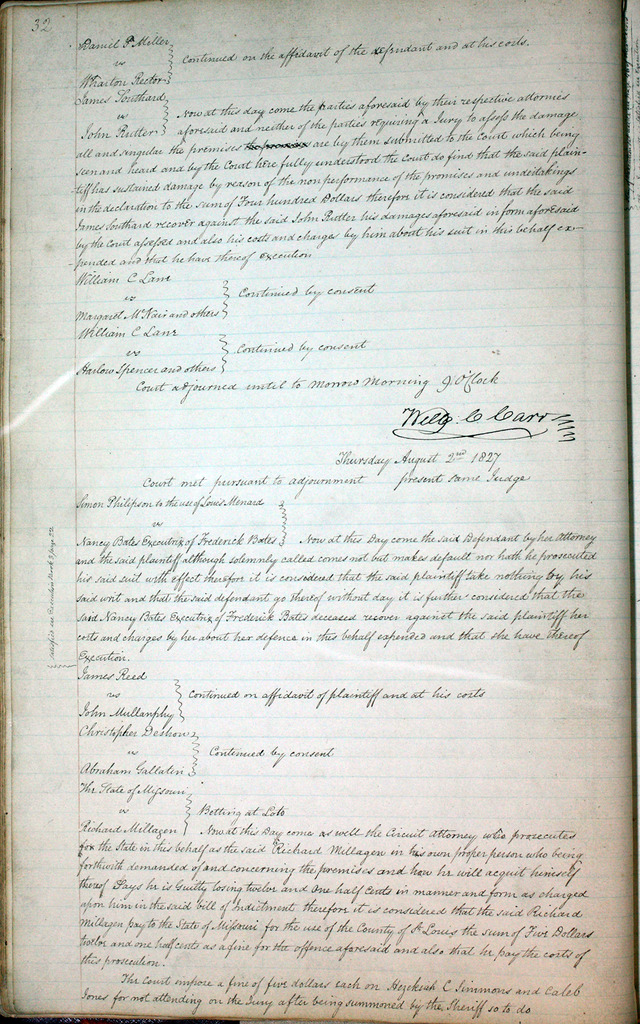 32
Daniel P Miller
vs
Continued on the affidavit of the defendant and at his costs.
Wharton Rector
James Southard
vs
Now at this day come the parties aforesaid by their respective attornies
John Rutter
aforesaid and neither of the parties requiring a Jury to assess the damage
all and singular the premises are by them submitted to the Court which being
seen and heard and by the Court here fully understood the Court do find that the said plain-
tiff has sustained damage by reason of the non performance of the promises and undertakings
in the declaration to the sum of Four hundred Dollars therefore it is considered that the said
James Southard recover against the said John Rutter his damages aforesaid in form aforesaid
by the Court assessed and also his costs and charges by him about his suit in this behalf ex-
-pended and that he have thereof execution
William C Lane
vs
Continued by consent
Margaret McNair and others
William C Lane
vs
Continued by consent
Harlow Spencer and others
Court adjourned until to Morrow Morning 9 O'Clock
Will C Carr
Thursday August 2nd 1827
Court met pursuant to adjournment present same Judge
Simon Philipson to the use of Louis Menard
vs
Nancy Bates Executrix of Frederick Bates
Now at this Day come the said Defendant by her Attorney
and the said plaintiff although solemnly called comes not but makes default nor hath he prosecuted
his said suit with effect therefore it is considered that the said plaintiff take nothing by his
said writ and that the said defendant go thereof without day it is further considered that the
said Nancy Bates Executrix of Frederick Bates deceased recover against the said plaintiff her
costs and charges by her about her defence in this behalf expended and that she have thereof
Execution.
James Reed
vs
Continued on affidavit of plaintiff and at his costs
John Mullanphy
Christopher Deshon
vs
Continued by consent
Abraham Gallatin
The State of Missouri
vs
Betting at Loto
Richard Millagen
Now at this Day come as well the Circuit attorney who prosecutes
for the State in this behalf as the said Richard Millagen in his own proper person who being
forthwith demanded of and concerning the premises and how he will acquit himself
thereof Says he is Guilty losing twelve and One half Cents in manner and form as charged
upon him in the said bill of Indictment therefore it is considered that the said Richard
Millagen pay to the State of Missouri for the use of the County of St Louis the sum of Five Dollars
twelve and one half cents as a fine for the offence aforesaid and also that he pay the costs of
this prosecution.
The Court impose a fine of five dollars each on Hezekiah C Simmons and Caleb
Jones for not attending on the Jury after being summoned by the Sheriff so to do